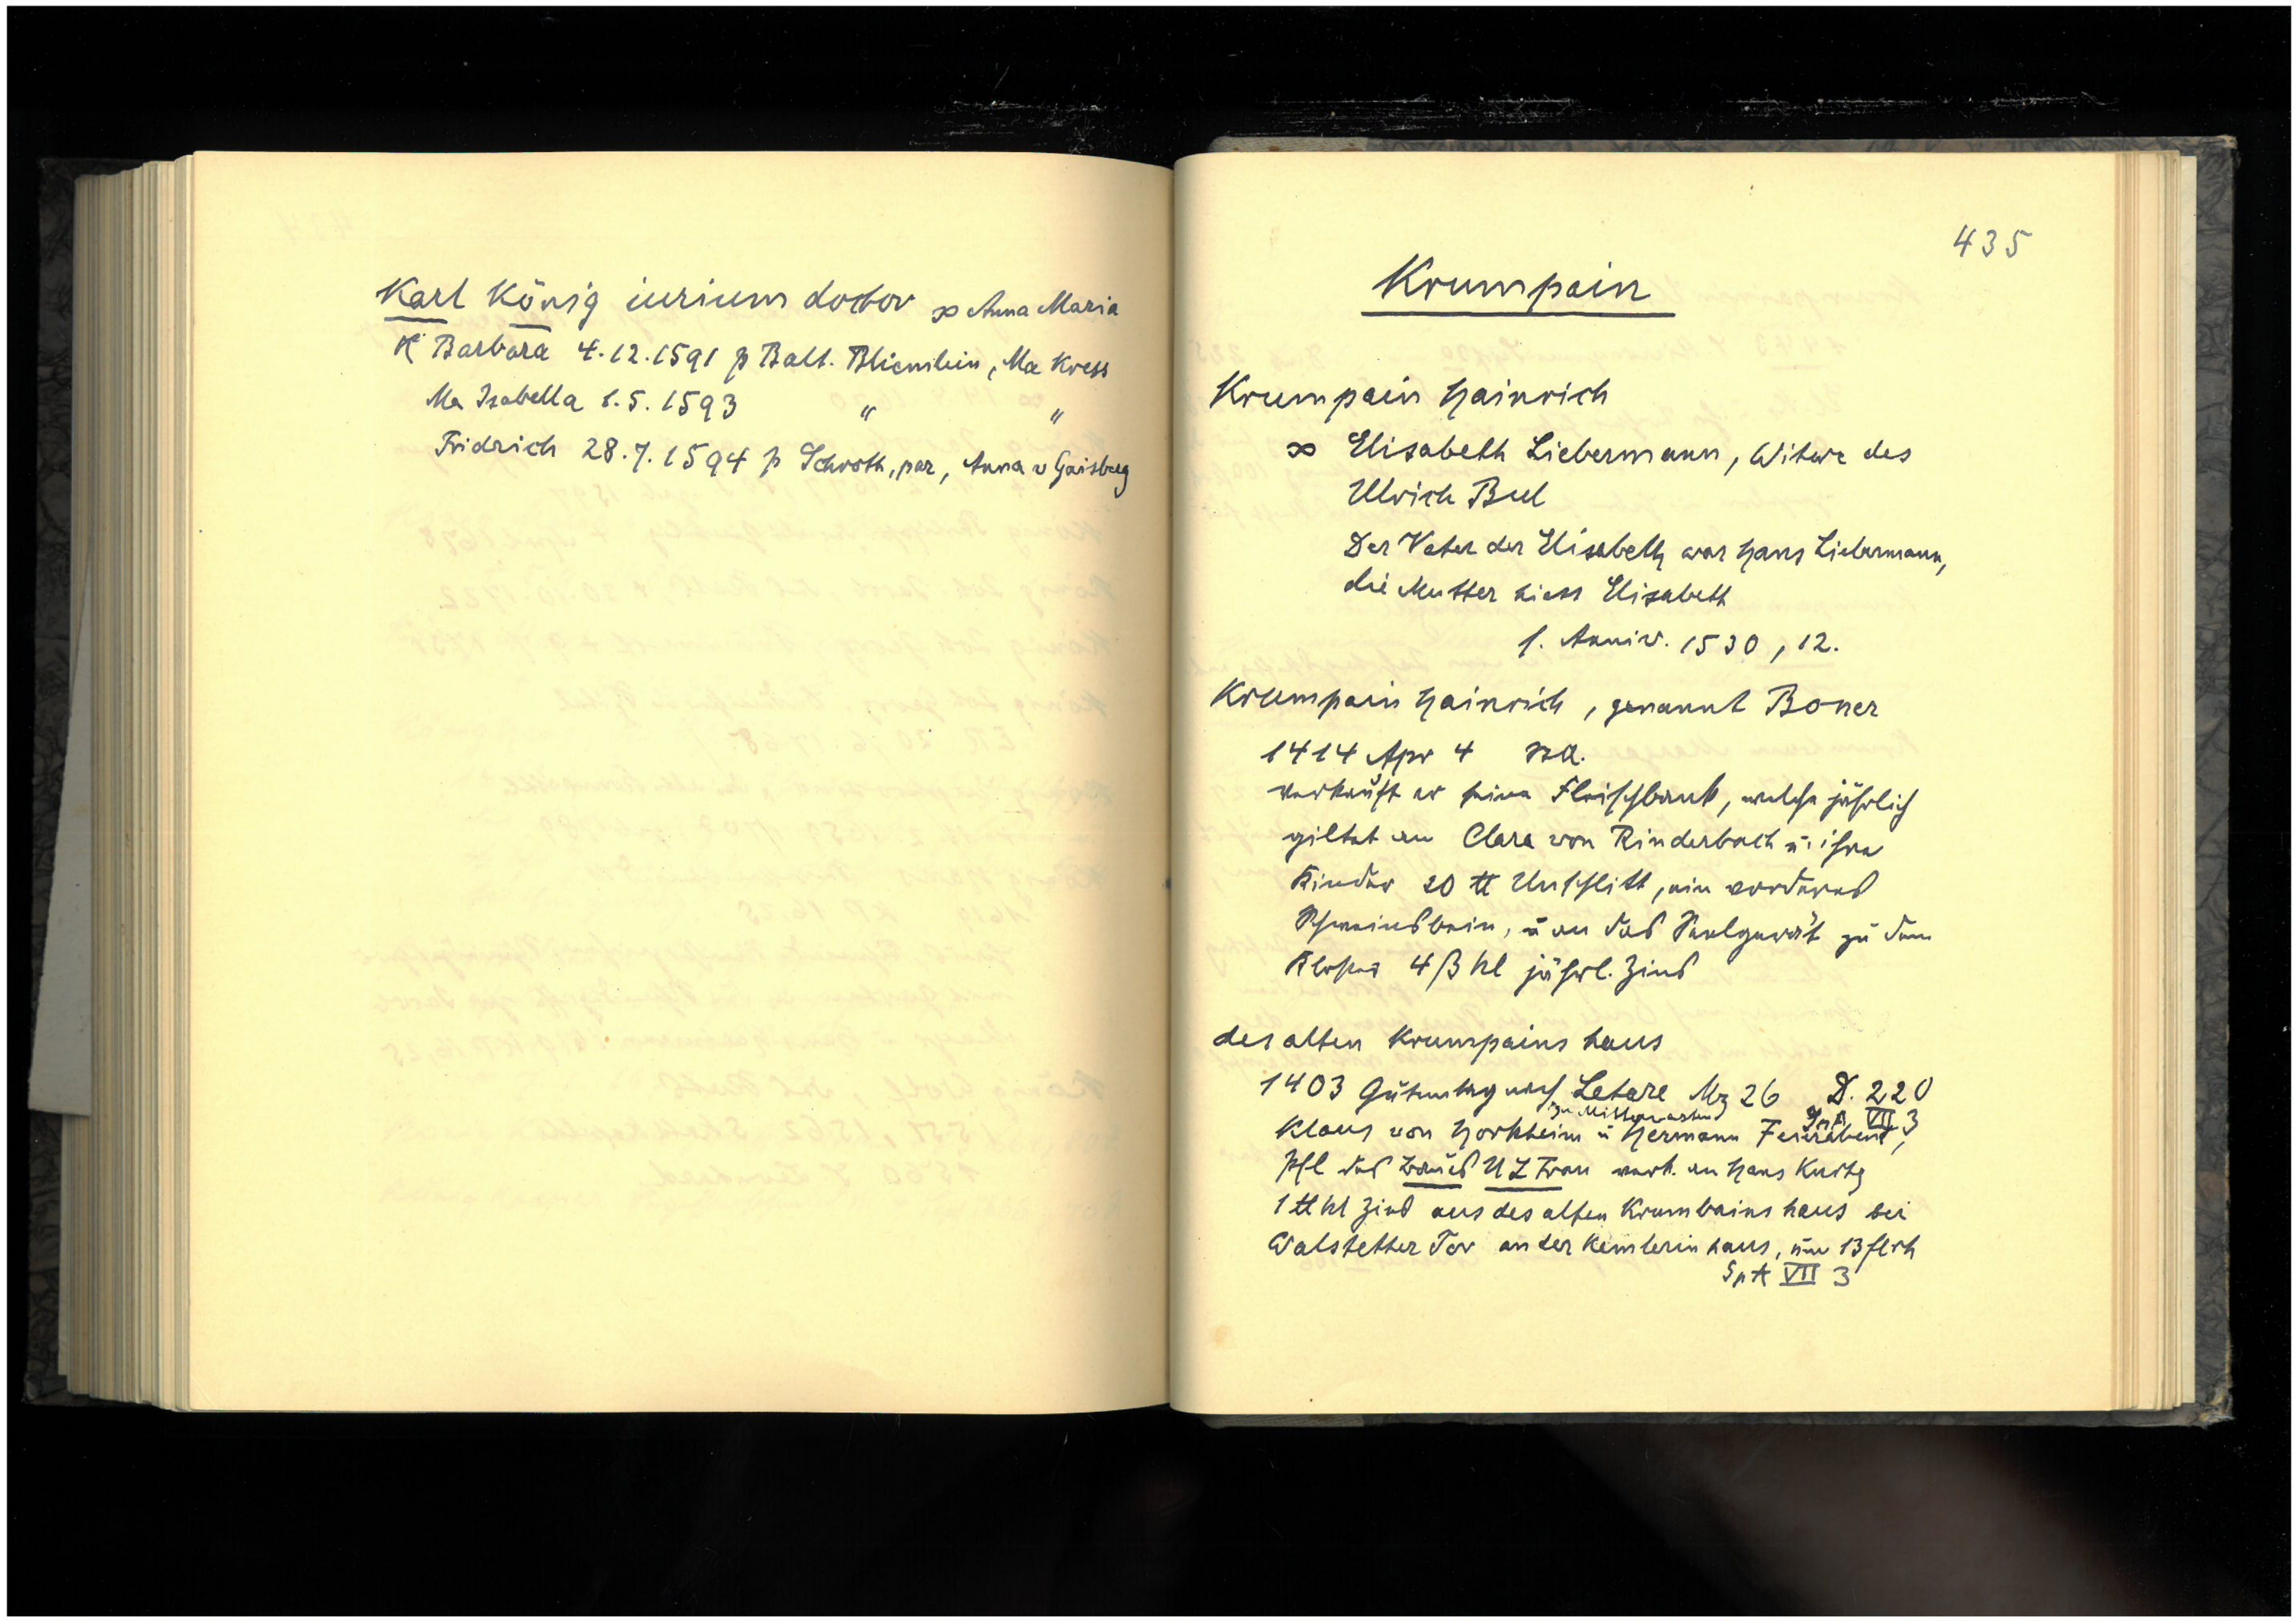 Karl König iurium doctor ∞ Anna Maria
K Barbara 4.12.1591 p Balt. Blienilein, Ma Kress
Ma Isabella 1.5.1593 " "
Fridrich 28.7.1594 p Schroth, par, Anna v Gaisberg
435
Krumpain
Krumpain Hainrich
∞ Elisabeth Liebermann, Witwe des
Ulrich Bul
Der Vater der Elisabeth war Hans Liebermann,
die Mutter hiess Elisabeth
1. Anniv. 1530, 12.
Krumpain Hainrich, genannt Boner
1414 Apr 4
verkauft er seine Fleischbank, welche jährlich
giltet an Clara von Rinderbach u. ihre
Kinder 20 ℔ Unschlitt, ein vorderes
Schweinsbein, u an das Seelgerät zu dem
Kloster 4 ß hl jährl. Zins
des alten Krumpains haus
1403 Gutemtag nach Letare Mz 26 D. 220
zu Mittervasten SpA VII 3
Klaus von Horkheim u Hermann Feierabent,
Pfl des Baus U L Frau verk. an Hans Kurtz
1 ℔ hl Zins aus des alten Krumbains haus bei
Walstetter Tor an der Kemlerin haus, um 13 fl rh
SpA VII 3